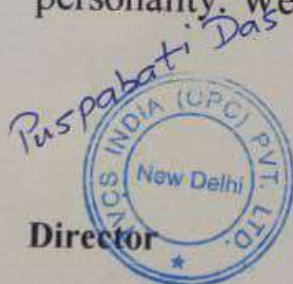 personality. We
Puspabati Das
VCS INDIA (OPC) PVT. LTD.
New Delhi
Director